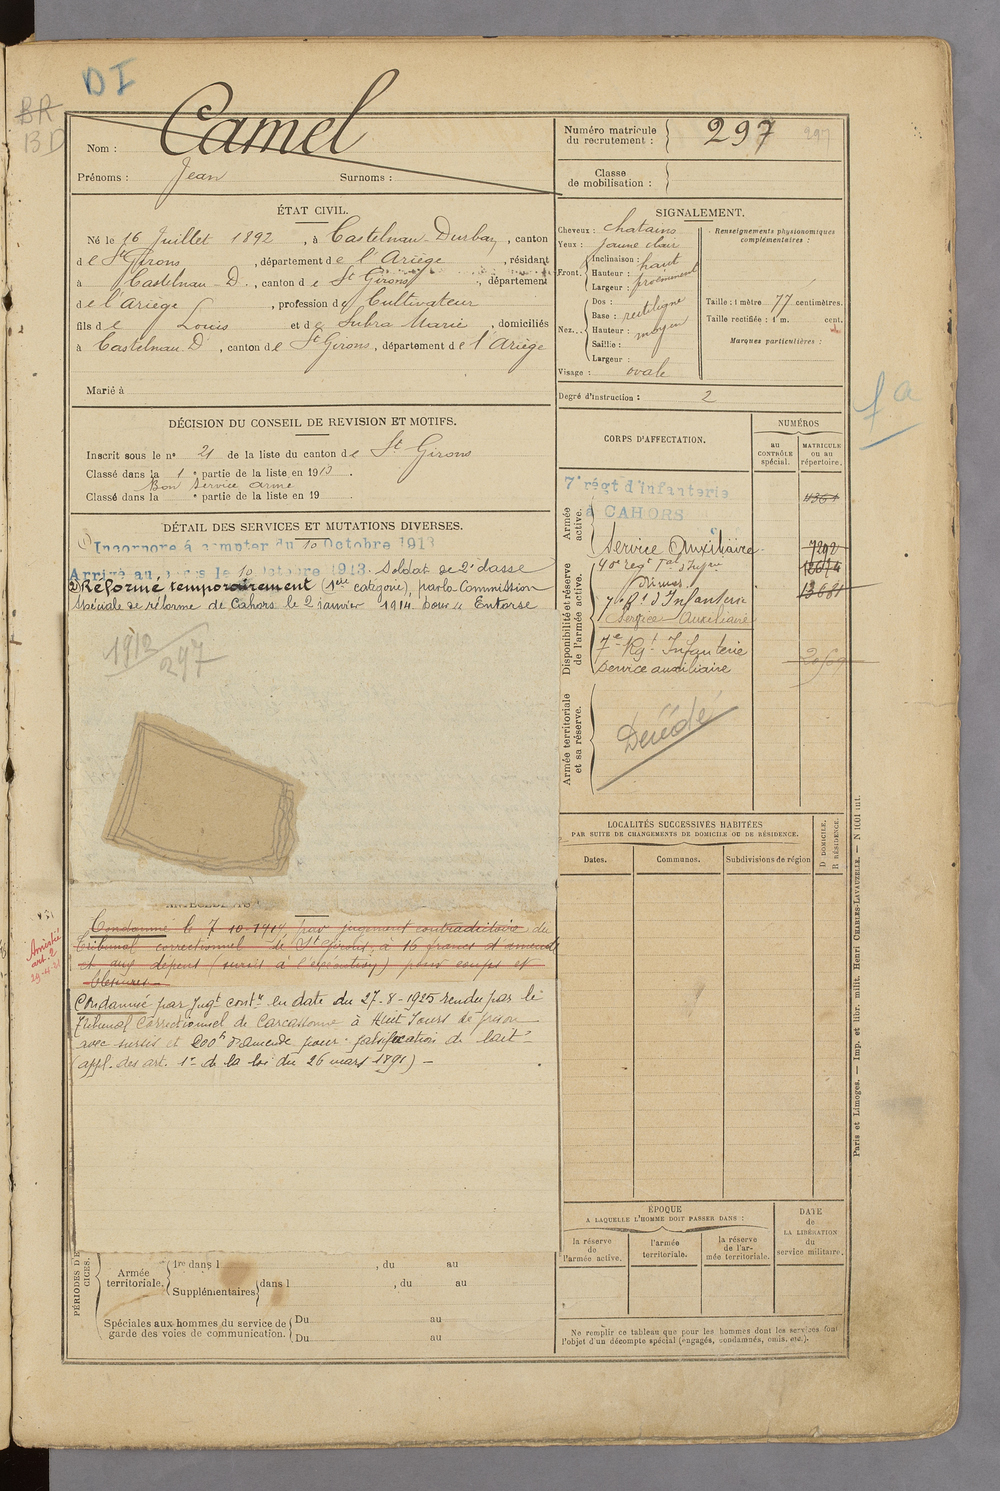 DI
BR
BD
Nom : Camel
Prénoms : Jean Surnoms :
Numéro matricule du recrutement : 297 297
Classe de mobilisation :
ÉTAT CIVIL.
Né le 16 Juillet 1892, à Castelnau-Durban, canton
de St Girons, département de l'Ariège, résidant
à Castelnau-D., canton de St Girons, département
de l'Ariège, profession de Cultivateur
fils de Louis et de Subra Marie, domiciliés
à Castelnau D., canton de St Girons, département de l'Ariège
Marié à
SIGNALEMENT.
Cheveux : chatains
Yeux : jaune clair
Front. Inclinaison : haut
Hauteur : proéminent
Largeur :
Nez. Dos : rectiligne
Base :
Hauteur : moyen
Saillie :
Largeur :
Visage : ovale
Renseignements physionomiques complémentaires :
Taille : 1 mètre 77 centimètres.
Taille rectifiée : 1 m. cent.
Marques particulières :
Degré d'instruction : 2
fa
DÉCISION DU CONSEIL DE REVISION ET MOTIFS.
Inscrit sous le n° 21 de la liste du canton de St Girons
Classé dans la 1e partie de la liste en 1913.
Bon service armé
Classé dans la e partie de la liste en 19
DÉTAIL DES SERVICES ET MUTATIONS DIVERSES.
Incorporé à compter du 10 Octobre 1913
Arrivé au corps le 10 Octobre 1913. Soldat de 2e classe
2) Réformé temporairement (1ère catégorie), par la Commission
spéciale de réforme de Cahors le 2 janvier 1914 pour « Entorse
1912
297
CORPS D'AFFECTATION.
NUMÉROS
au CONTRÔLE spécial.
MATRICULE OU AU répertoire.
Armée active.
7e régt d'Infanterie
à CAHORS
4361
Service Auxiliaire 7292
Disponibilité et réserve de l'armée active.
40e reg
Nimes
13681
7e Rt d'Infanterie
Service Auxiliaire
7e Rgt Infanterie
Service auxiliaire
Armée territoriale et sa réserve.
Décédé
LOCALITÉS SUCCESSIVES HABITÉES
PAR SUITE DE CHANGEMENTS DE DOMICILE OU DE RÉSIDENCE.
Dates. Communes. Subdivisions de région
D DOMICILE, R RÉSIDENCE.
ANTÉCÉDENTS
Condamné le 7-10-1914, par jugement contradictoire du
tribunal correctionnel de St Girons, à 16 francs d'amende
et aux dépens (sursis à l'exécution) pour coups et
blessures
Amnistié
art. 2
Condamné par jugt contre en date du 27-8-1925 rendu par le
tribunal Correctionnel de Carcassonne à Huit Jours de prison
avec sursis et 200f d'amende pour : falsification de lait
(appl. des art. 1er de la loi du 26 mars 1891) -
ÉPOQUE
A LAQUELLE L'HOMME DOIT PASSER DANS :
la réserve de l'armée active.
l'armée territoriale.
la réserve de l'armée territoriale.
DATE de LA LIBÉRATION du service militaire.
PÉRIODES D'E
CICES.
Armée territoriale. 1re dans l , du au
Supplémentaires dans l , du au
Spéciales aux hommes du service de garde des voies de communication. Du au
Du au
Ne remplir ce tableau que pour les hommes dont les services font
l'objet d'un décompte spécial (engagés, condamnés, omis, etc.).
Paris et Limoges. — Imp. et libr. milit. Henri CHARLES-LAVAUZELLE. — N 1C01 int.